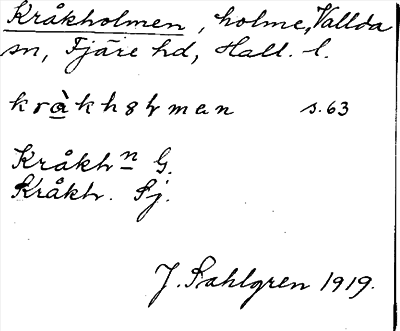 Kråkholmen, holme, Vallda
sn, Fjäre hd, Hall. l.
kråkhålman s. 63
Kråkhn G.
Kråkh. Sj.
J. Sahlgren 1919.